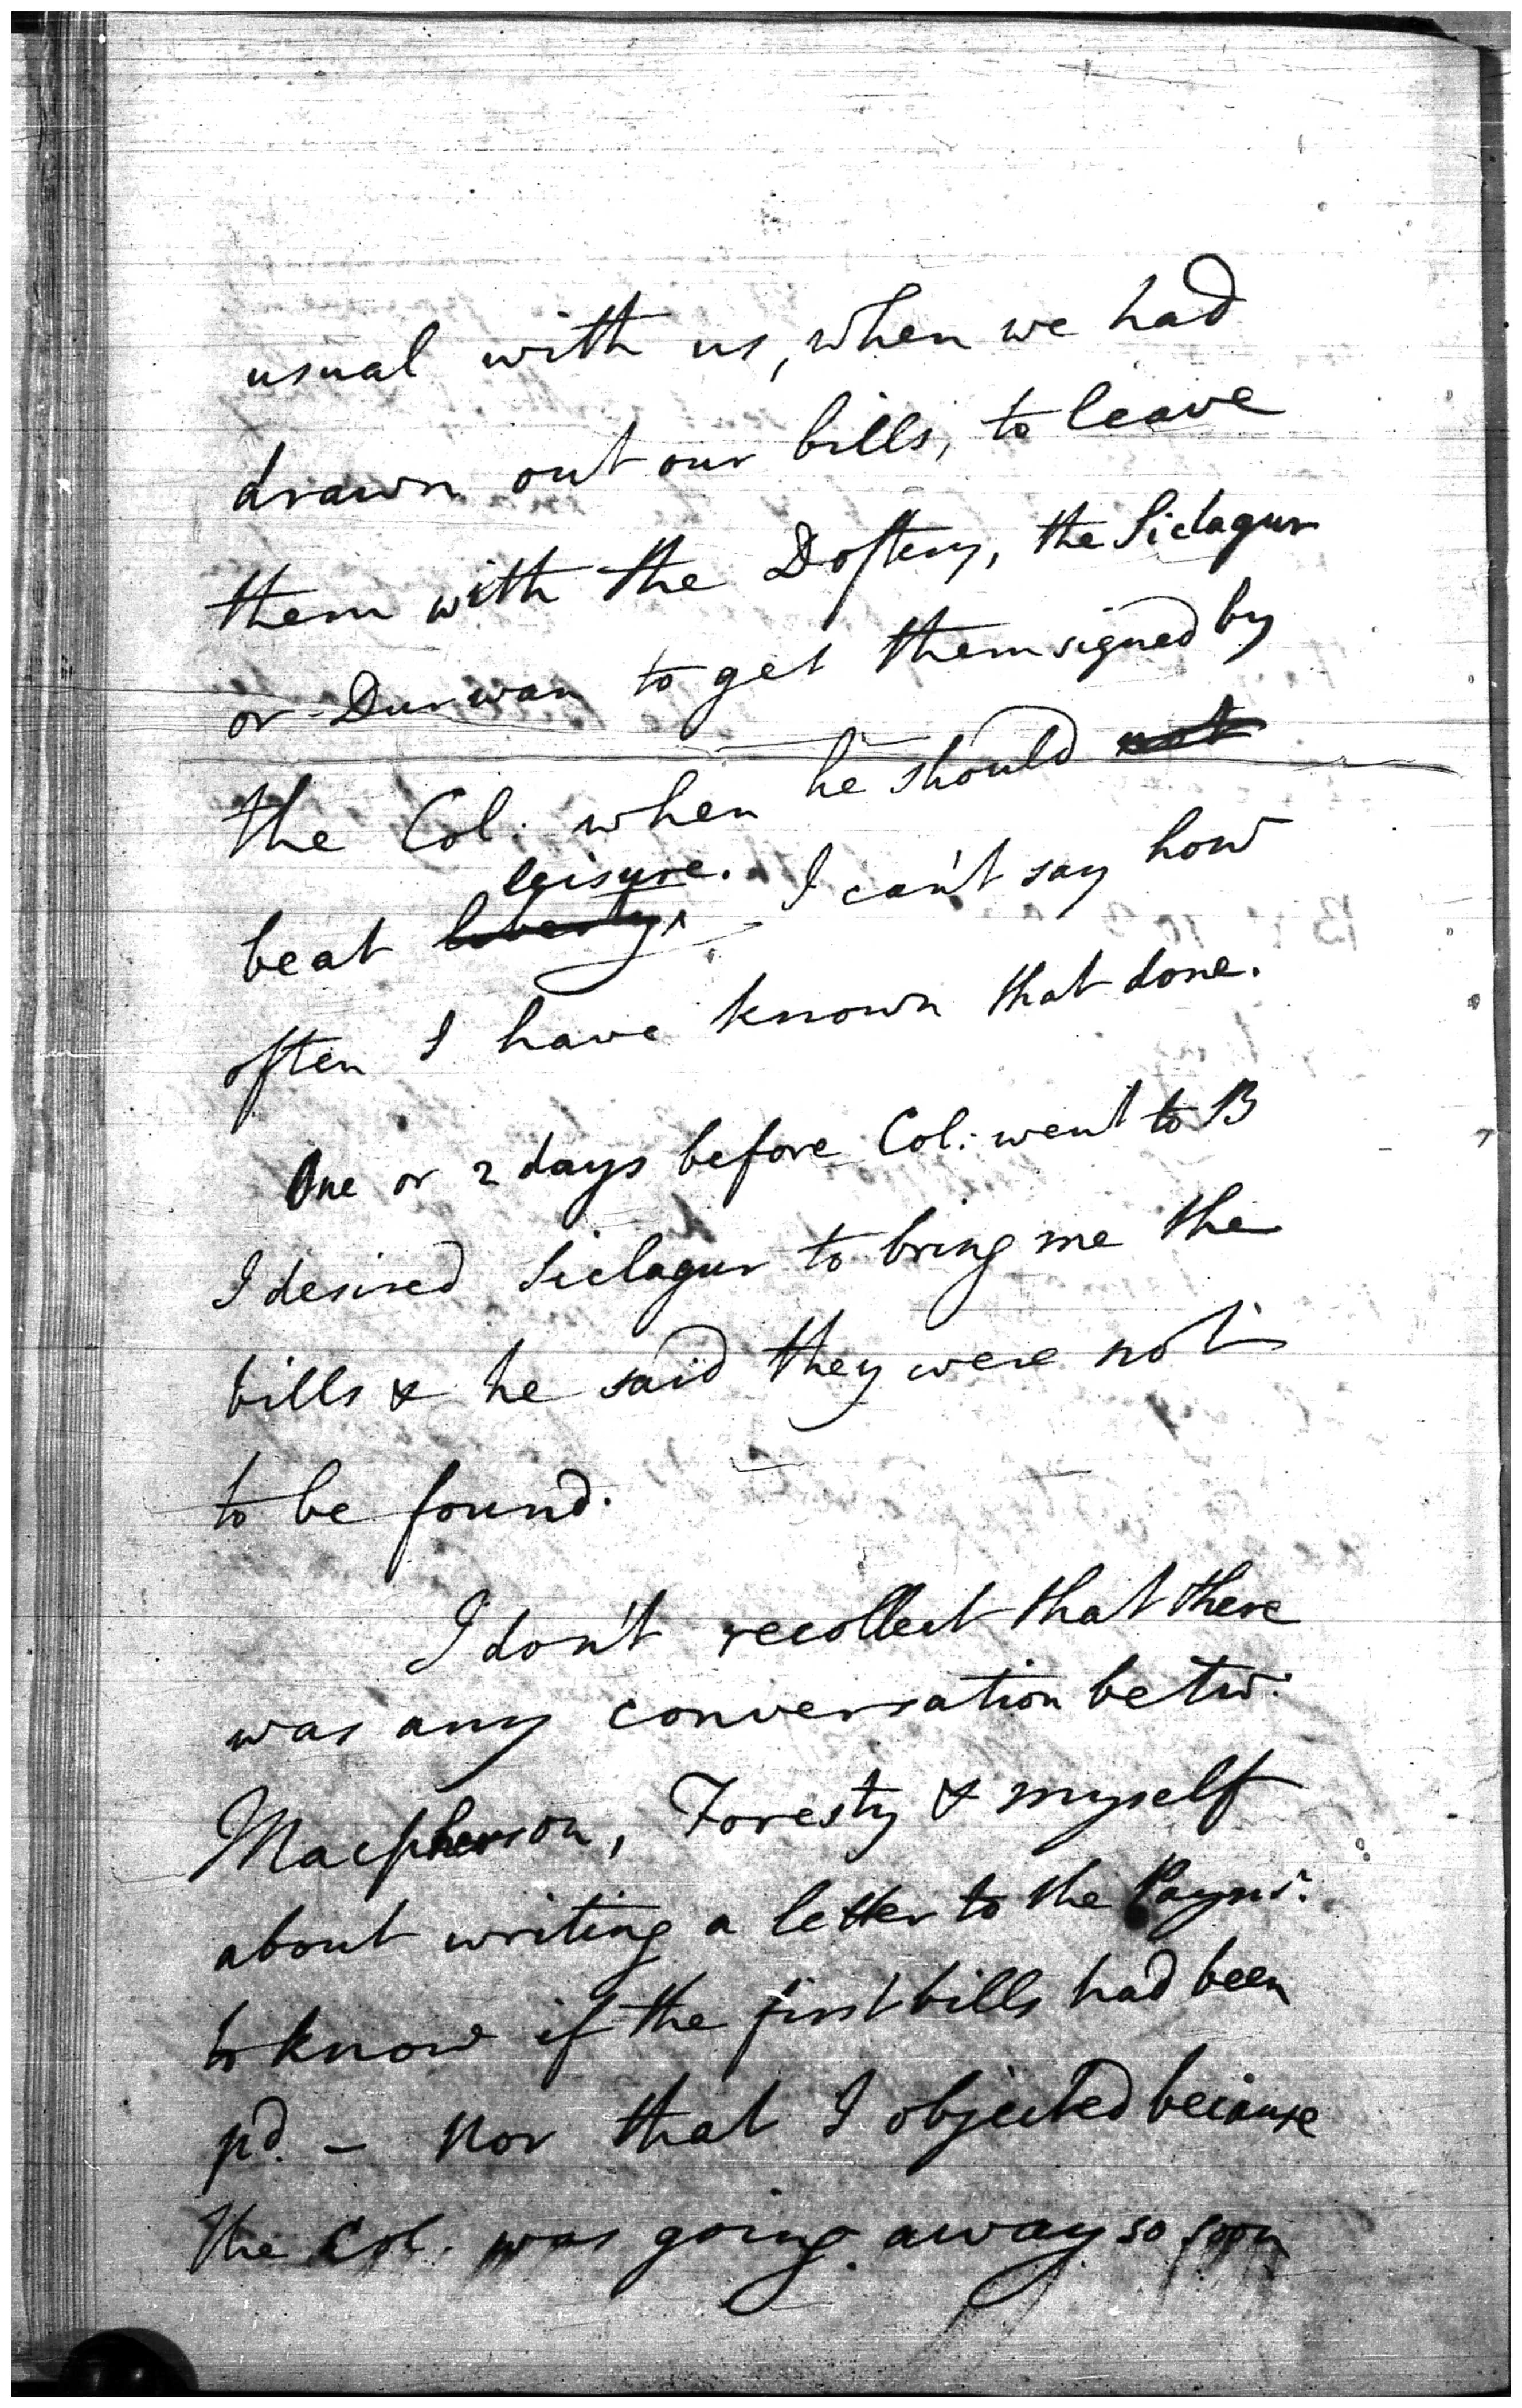 usual with us, when we had
drawn out our bills, to leave
them with the Doftery, the Siclagur
or Durwan to get them signed by
the Col: when he should not
leisure.
beat liberty. I can't say how
often I have known that done.
One or 2 days before Col: went to B
I desired Siclagur to bring me the
bills & he said they were not
to be found.
I don't recollect that there
was any conversation betw:
Macpherson, Foresty & myself
about writing a letter to the Paymr:
to know if the first bills had been
pd. - nor that I objected because
the Col. was going away so soon